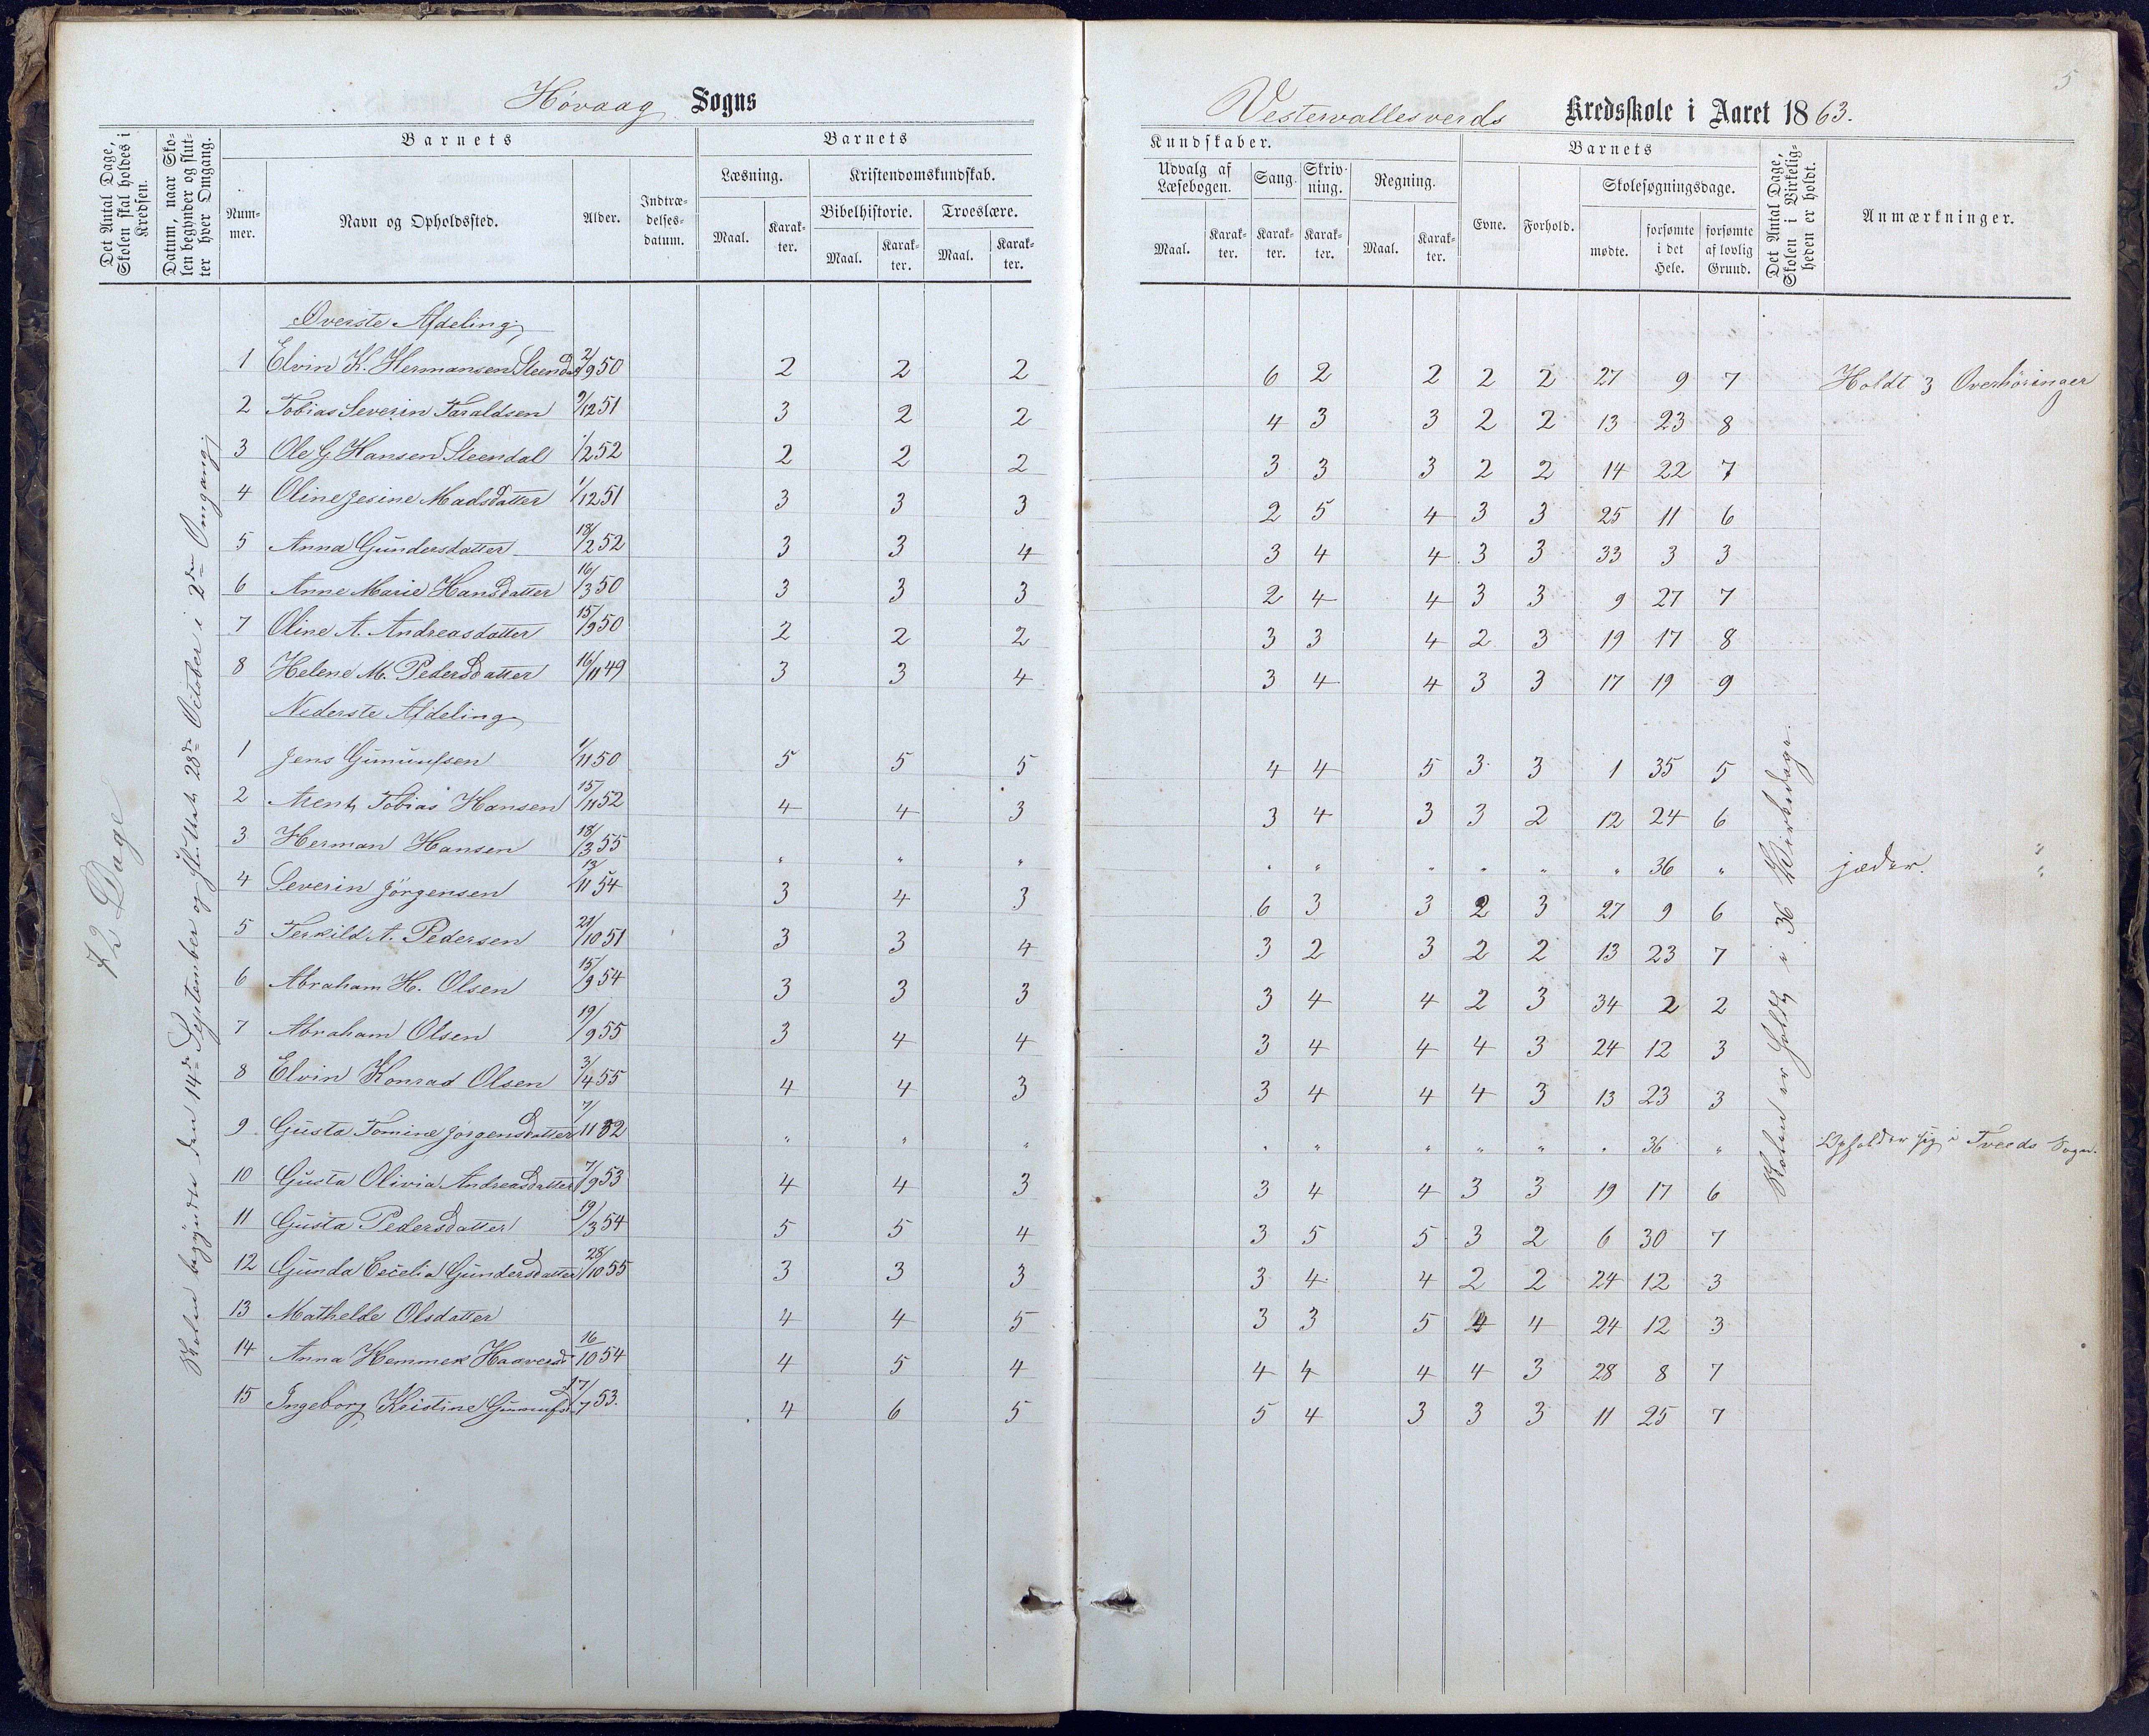 5
Høvaag Sogns
Vestervallesverds Kredsskole i Aaret 1863.
Det Antal Dage, Skolen skal holdes i Kredsen.
Datum, naar Skolen begynder og slutter hver Omgang.
Barnets
Nummer.
Navn og Opholdssted.
Alder.
Indtrædelsesdatum.
Barnets
Læsning.
Maal.
Karakter.
Kristendomskundskab.
Bibelhistorie.
Maal.
Karakter.
Troeslære.
Maal.
Karakter.
Kundskaber.
Udvalg af Læsebogen.
Maal.
Karakter.
Sang.
Karakter.
Skrivning.
Karakter.
Regning.
Maal.
Karakter.
Barnets
Evne.
Forhold.
Skolesøgningsdage.
mødte.
forsømte i det Hele.
forsømte af lovlig Grund.
Det Antal Dage, Skolen i Virkeligheden er holdt.
Anmærkninger.
72 Dage
Skolen begyndte den 14de September og sluttet 28de October i 2den Omgang
Overste Afdeling
1 Elvin K. Hermansen Steendal 2/9 50 2 2 2 6 2 2 2 2 27 9 7 Holdt 3 Overhöringer
2 Tobias Severin Taraldsen 9/12 51 3 2 2 4 3 3 2 2 13 23 8
3 Ole G Hansen Steendal 1/2 52 2 2 2 3 3 3 2 2 14 22 7
4 Oline Jesine Madsdatter 1/12 51 3 3 3 2 5 4 3 3 25 11 6
5 Anna Gundersdatter 18/2 52 3 3 4 3 4 4 3 3 33 3 3
6 Anne Marie Hansdatter 16/3 50 3 3 3 2 4 4 3 3 9 27 7
7 Oline A. Andreasdatter 15/9 50 2 2 2 3 3 4 2 3 19 17 8
8 Helene M. Pedersdatter 16/11 49 3 3 4 3 4 4 3 3 17 19 9
Nederste Afdeling
1 Jens Gunuufsen 1/11 50 5 5 5 4 4 5 3 3 1 35 5
2 Arent Tobias Hansen 15/11 52 4 4 3 3 4 3 3 2 12 24 6
3 Herman Hansen 18/3 55 " " " " " " " " " 36 " jæder. "
4 Severin Jörgensen 13/11 54 3 4 3 6 3 3 2 3 27 9 6 "
5 Terkild A. Pedersen 21/10 51 3 3 4 3 2 3 2 2 13 23 7
6 Abraham H. Olsen 15/9 54 3 3 3 3 4 4 2 3 34 2 2
7 Abraham Olsen 19/9 55 3 4 4 3 4 4 4 3 24 12 3
8 Elvin Konrad Olsen 3/4 55 4 4 3 3 4 4 4 3 13 23 3
9 Gusta Tomine Jörgensdatter 7/11 52 " " " " " " " " " 36 " Opholder sig i Tveeds Sogn.
10 Gusta Olivia Andreasdatter 7/9 53 4 4 3 3 4 4 3 3 19 17 6
11 Gusta Pedersdatter 19/3 54 5 5 4 3 5 5 3 2 6 30 7
12 Gunda Cecelia Gundersdatter 28/10 55 3 3 3 3 4 4 2 2 24 12 3
13 Mathelde Olsdatter 4 4 5 3 3 5 4 4 24 12 3
14 Anna Hemmek Haaversd 16/10 54 4 5 4 4 4 4 4 3 28 8 7
15 Ingeborg Kristine Gunnufsd 17/7 53. 4 6 5 5 4 3 3 3 11 25 7
Skolen er holdt i 36 Virkedage.